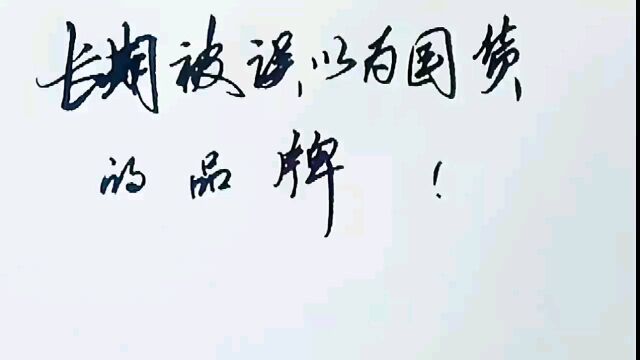 长期被误以为国货
的品牌！